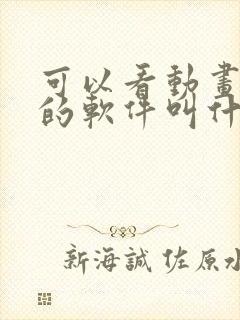 可以看動畫
的軟件叫什
新海誠 佐原水